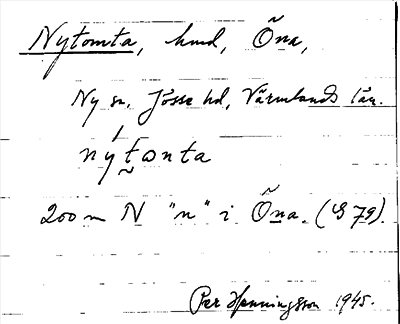 Nytomta, hmd, Õna,
Ny sn, Jösse hd, Värmlands län.
nýtωnta
200 m N "n" i Õna. (G 79).
Per Henningsson 1945.